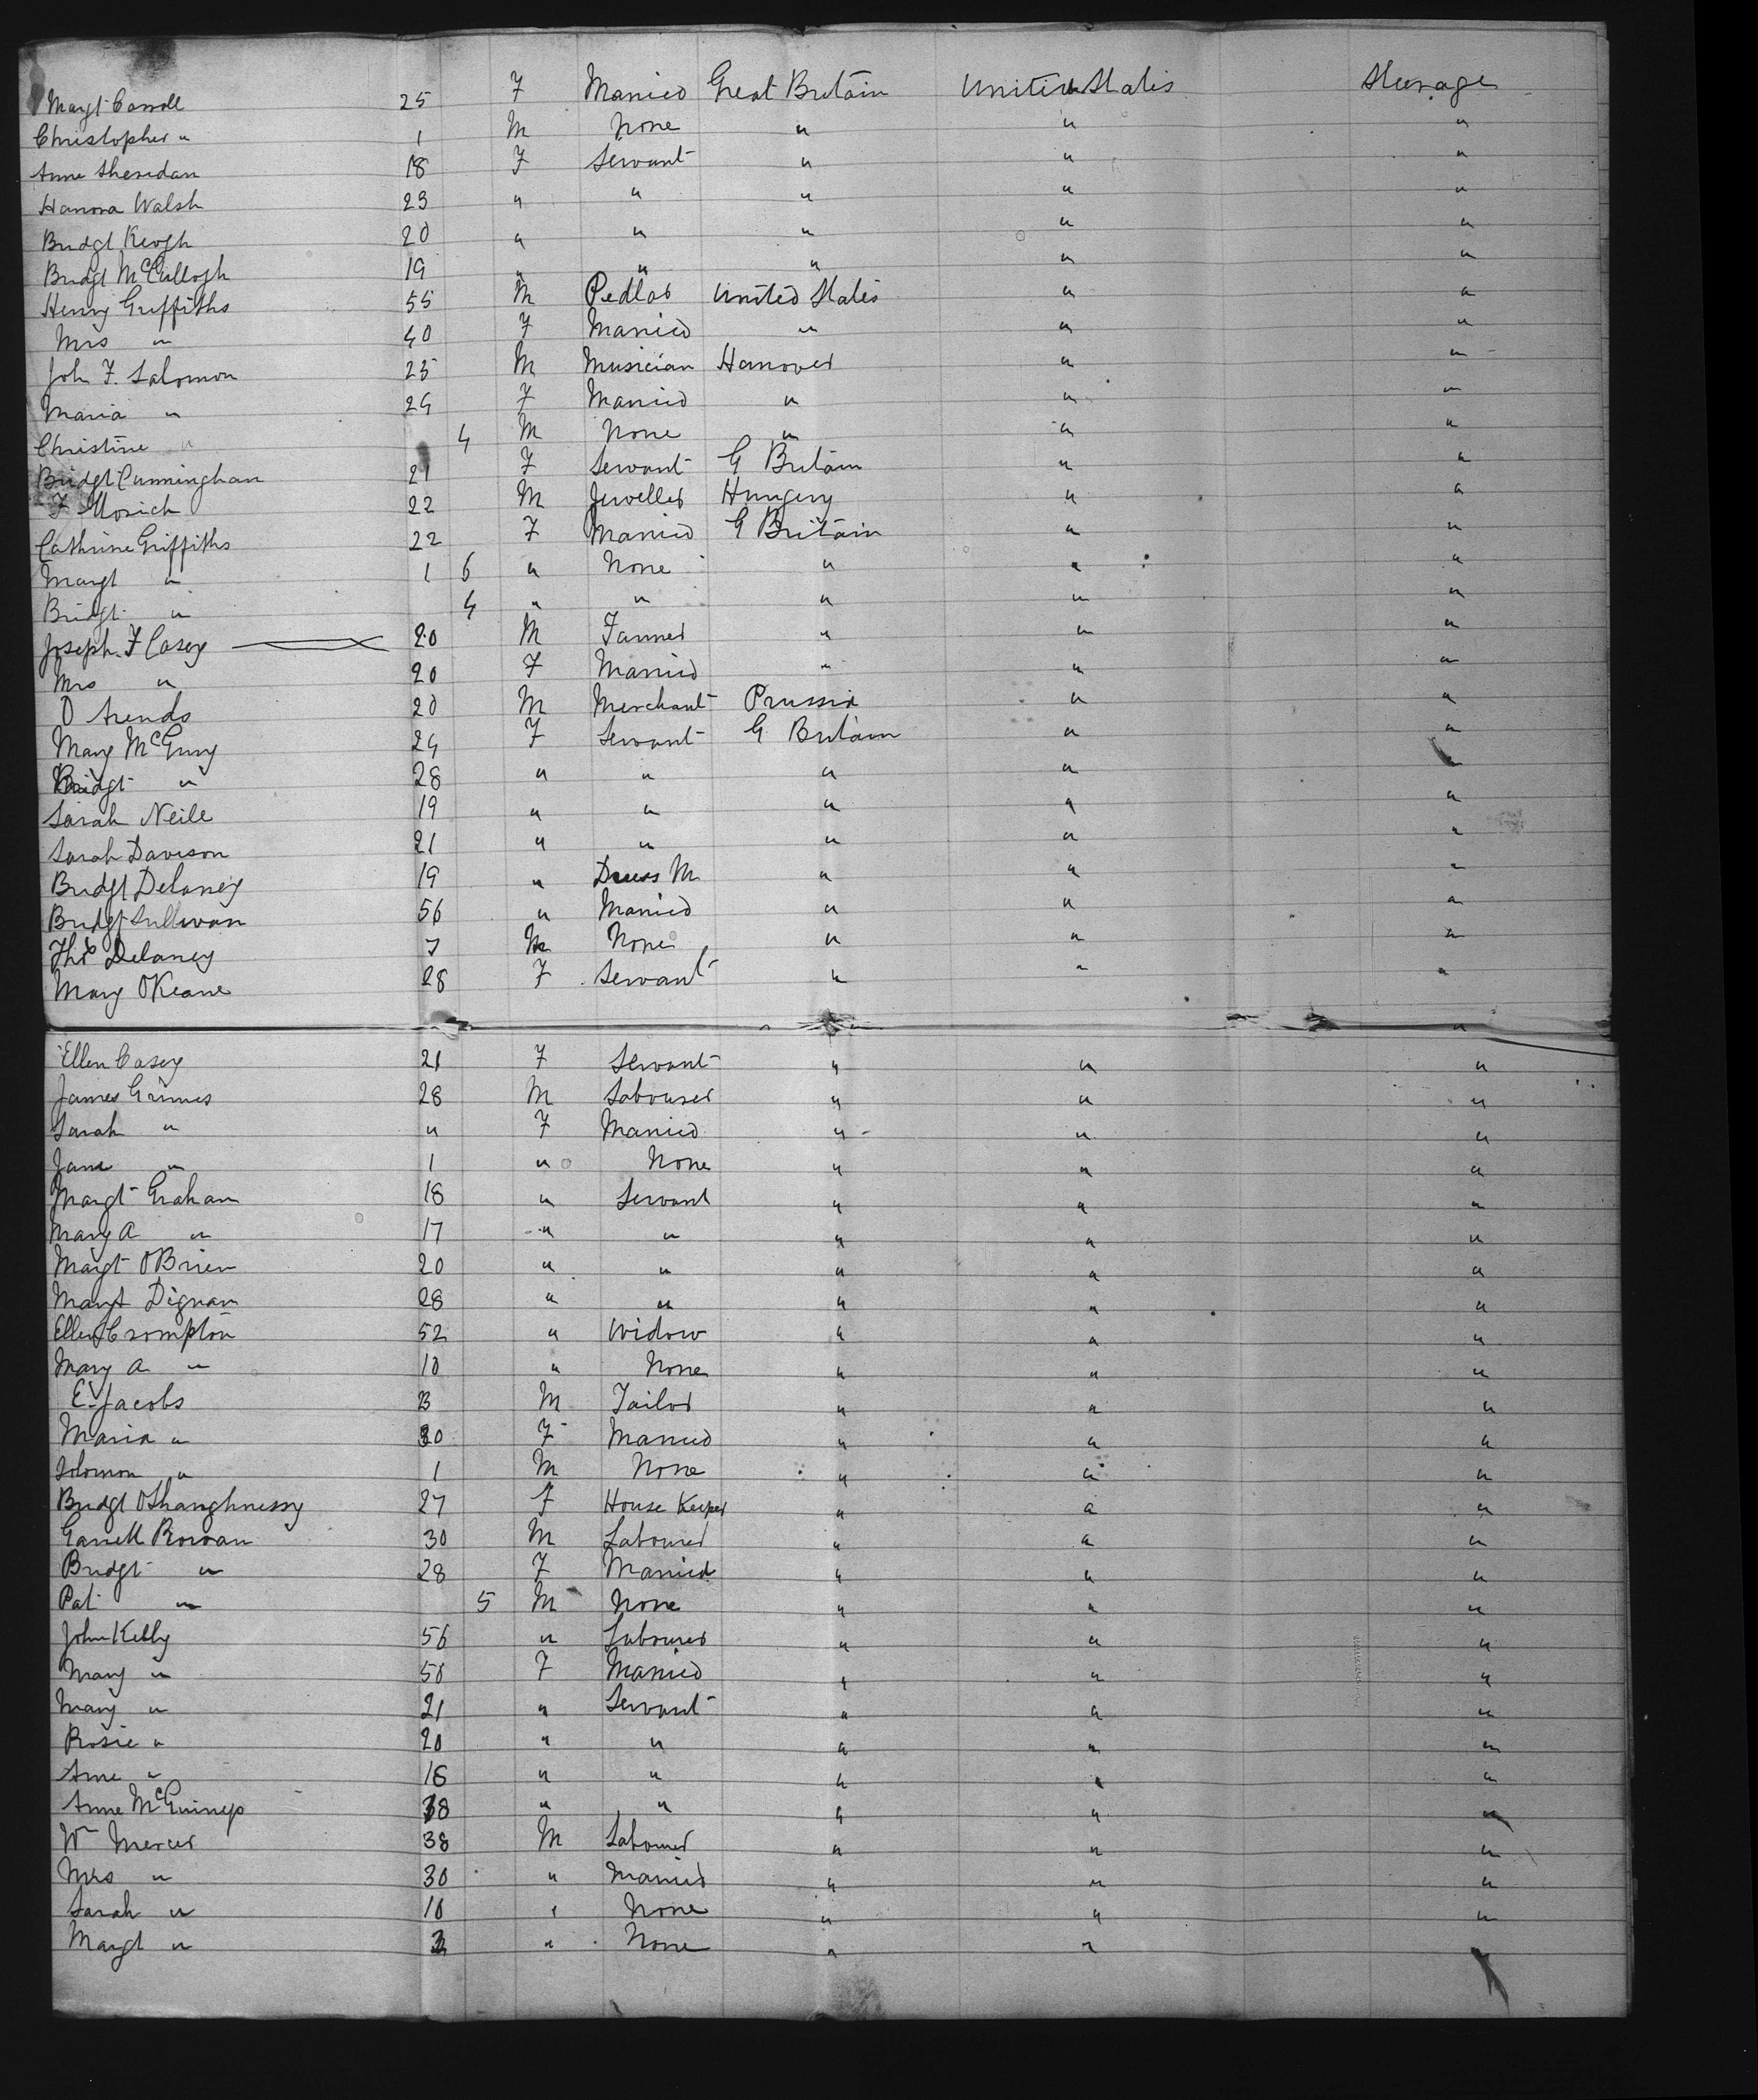 Margt Carroll 25 F Married Great Britain United States Steerage
Christopher " 1 M None " " "
Anne Sheridan 18 F Servant " " "
Hanora Walsh 23 " " " " "
Bridgt Keogh 20 " " " " "
Bridgt McCullogh 19 " " " " "
Henry Griffiths 55 M Pedlar United States " "
Mrs " 40 F Married " " "
Joh F. Salomon 25 M Musician Hanover " "
Maria " 24 F Married " " "
Christine " 4 M None " " "
Bridgt Cunningham 21 F Servant G Britain " "
F 22 M Jeweller Hungery " "
Cathrine Griffiths 22 F Married G Britain " "
Margt " 1 6 " None " " "
Bridgt " 4 " " " " "
Joseph F Casey 20 M Farmer " " "
Mrs " 20 F Married " " "
O Arends 20 M Merchant Prussia " "
Mary McGurry 24 F Servant G Britain " "
Bridgt " 28 " " " " "
Sarah Neile 19 " " " " "
Sarah Davison 21 " " " " "
Bridgt Delaney 19 " Dress M " " "
Bridgt Sullivan 56 " Married " " "
Thos Delaney 7 M None " " "
Mary OKeane 28 F Servant " " "
"
Ellen Casey 21 F Servant " " "
James Grimes 28 M Labourer " " "
Sarah " " F Married " " "
Jane " 1 " None " " "
Margt Graham 18 " Servant " " "
Mary A " 17 " " " " "
Margt OBrien 20 " " " " "
Margt Dignam 28 " " " " "
Ellen Crompton 52 " Widow " " "
Mary A " 10 " None " " "
E. Jacobs 23 M Tailor " " "
Maria " 30 F Married " " "
Solomon " 1 M None " " "
Bridgt OShanghnessy 27 F House Keeper " " "
Garrett Rowan 30 M Labourer " " "
Bridgt " 28 F Married " " "
Pat " 5 M None " " "
John Kelly 56 " Labourer " " "
Mary " 50 F Married " " "
Mary " 21 " Servant " " "
Rosie " 20 " " " " "
Anne " 18 " " " " "
Anne McGuiness 38 " " " " "
Wm Mercer 38 M Labourer " " "
Mrs " 30 " Married " " "
Sarah " 10 " None " " "
Margt " 2 " None " "